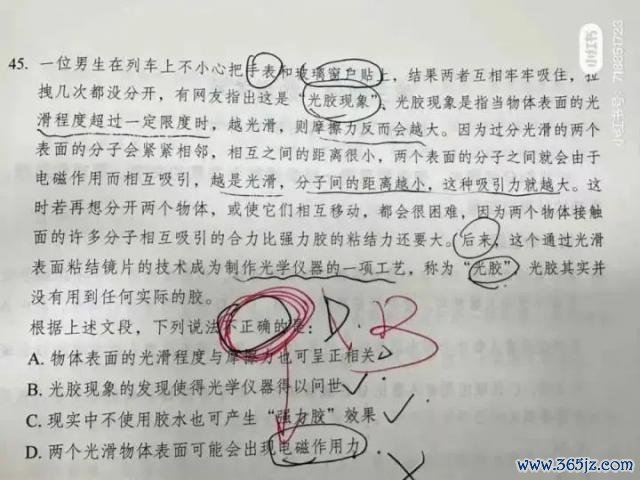 小红书
小红书号:718651723
45. 一位男生在列车上不小心把手表和玻璃窗户贴上，结果两者互相牢牢吸住，拉
拽几次都没分开，有网友指出这是“光胶现象”。光胶现象是指当物体表面的光
滑程度超过一定限度时，越光滑，则摩擦力反而会越大。因为过分光滑的两个
表面的分子会紧紧相邻，相互之间的距离很小，两个表面的分子之间就会由于
电磁作用而相互吸引，越是光滑，分子间的距离越小，这种吸引力就越大。这
时若再想分开两个物体，或使它们相互移动，都会很困难，因为两个物体接触
面的许多分子相互吸引的合力比强力胶的粘结力还要大。后来，这个通过光滑
表面粘结镜片的技术成为制作光学仪器的一项工艺，称为“光胶”，光胶其实并
没有用到任何实际的胶。
根据上述文段，下列说法不正确的是： D. B
A. 物体表面的光滑程度与摩擦力也可呈正相关
B. 光胶现象的发现使得光学仪器得以问世
C. 现实中不使用胶水也可产生“强力胶”效果
D. 两个光滑物体表面可能会出现电磁作用力
www.365jz.com